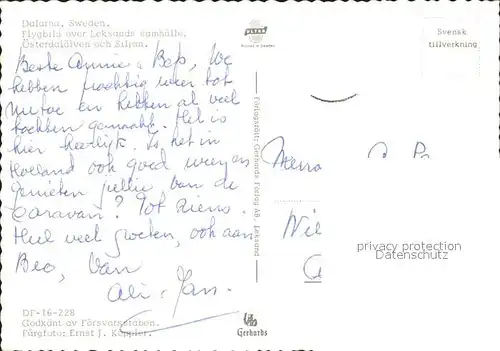 Dalarna, Sweden.
Flygbild över Leksands samhälle,
Österdalälven och Siljan.
Beste Annie, Bep, We
hebben prachtig weer tot
nu toe en hebben al veel
tochten gemaakt. Het is
hier heerlijk. Is het in
Holland ook goed weer en
genieten jullie van de
caravan? Tot ziens.
Heel veel groeten, ook aan
Beo, Van
Ali + Jan.
DF-16-228
Godkänt av Försvarsstaben.
Färgfoto: Ernst J. Köppler.
Printed in Sweden
Förlagsrätt: Gerhards Förlag AB, Leksand
Gerhards
Svensk
tillverkning
privacy protection
Datenschutz